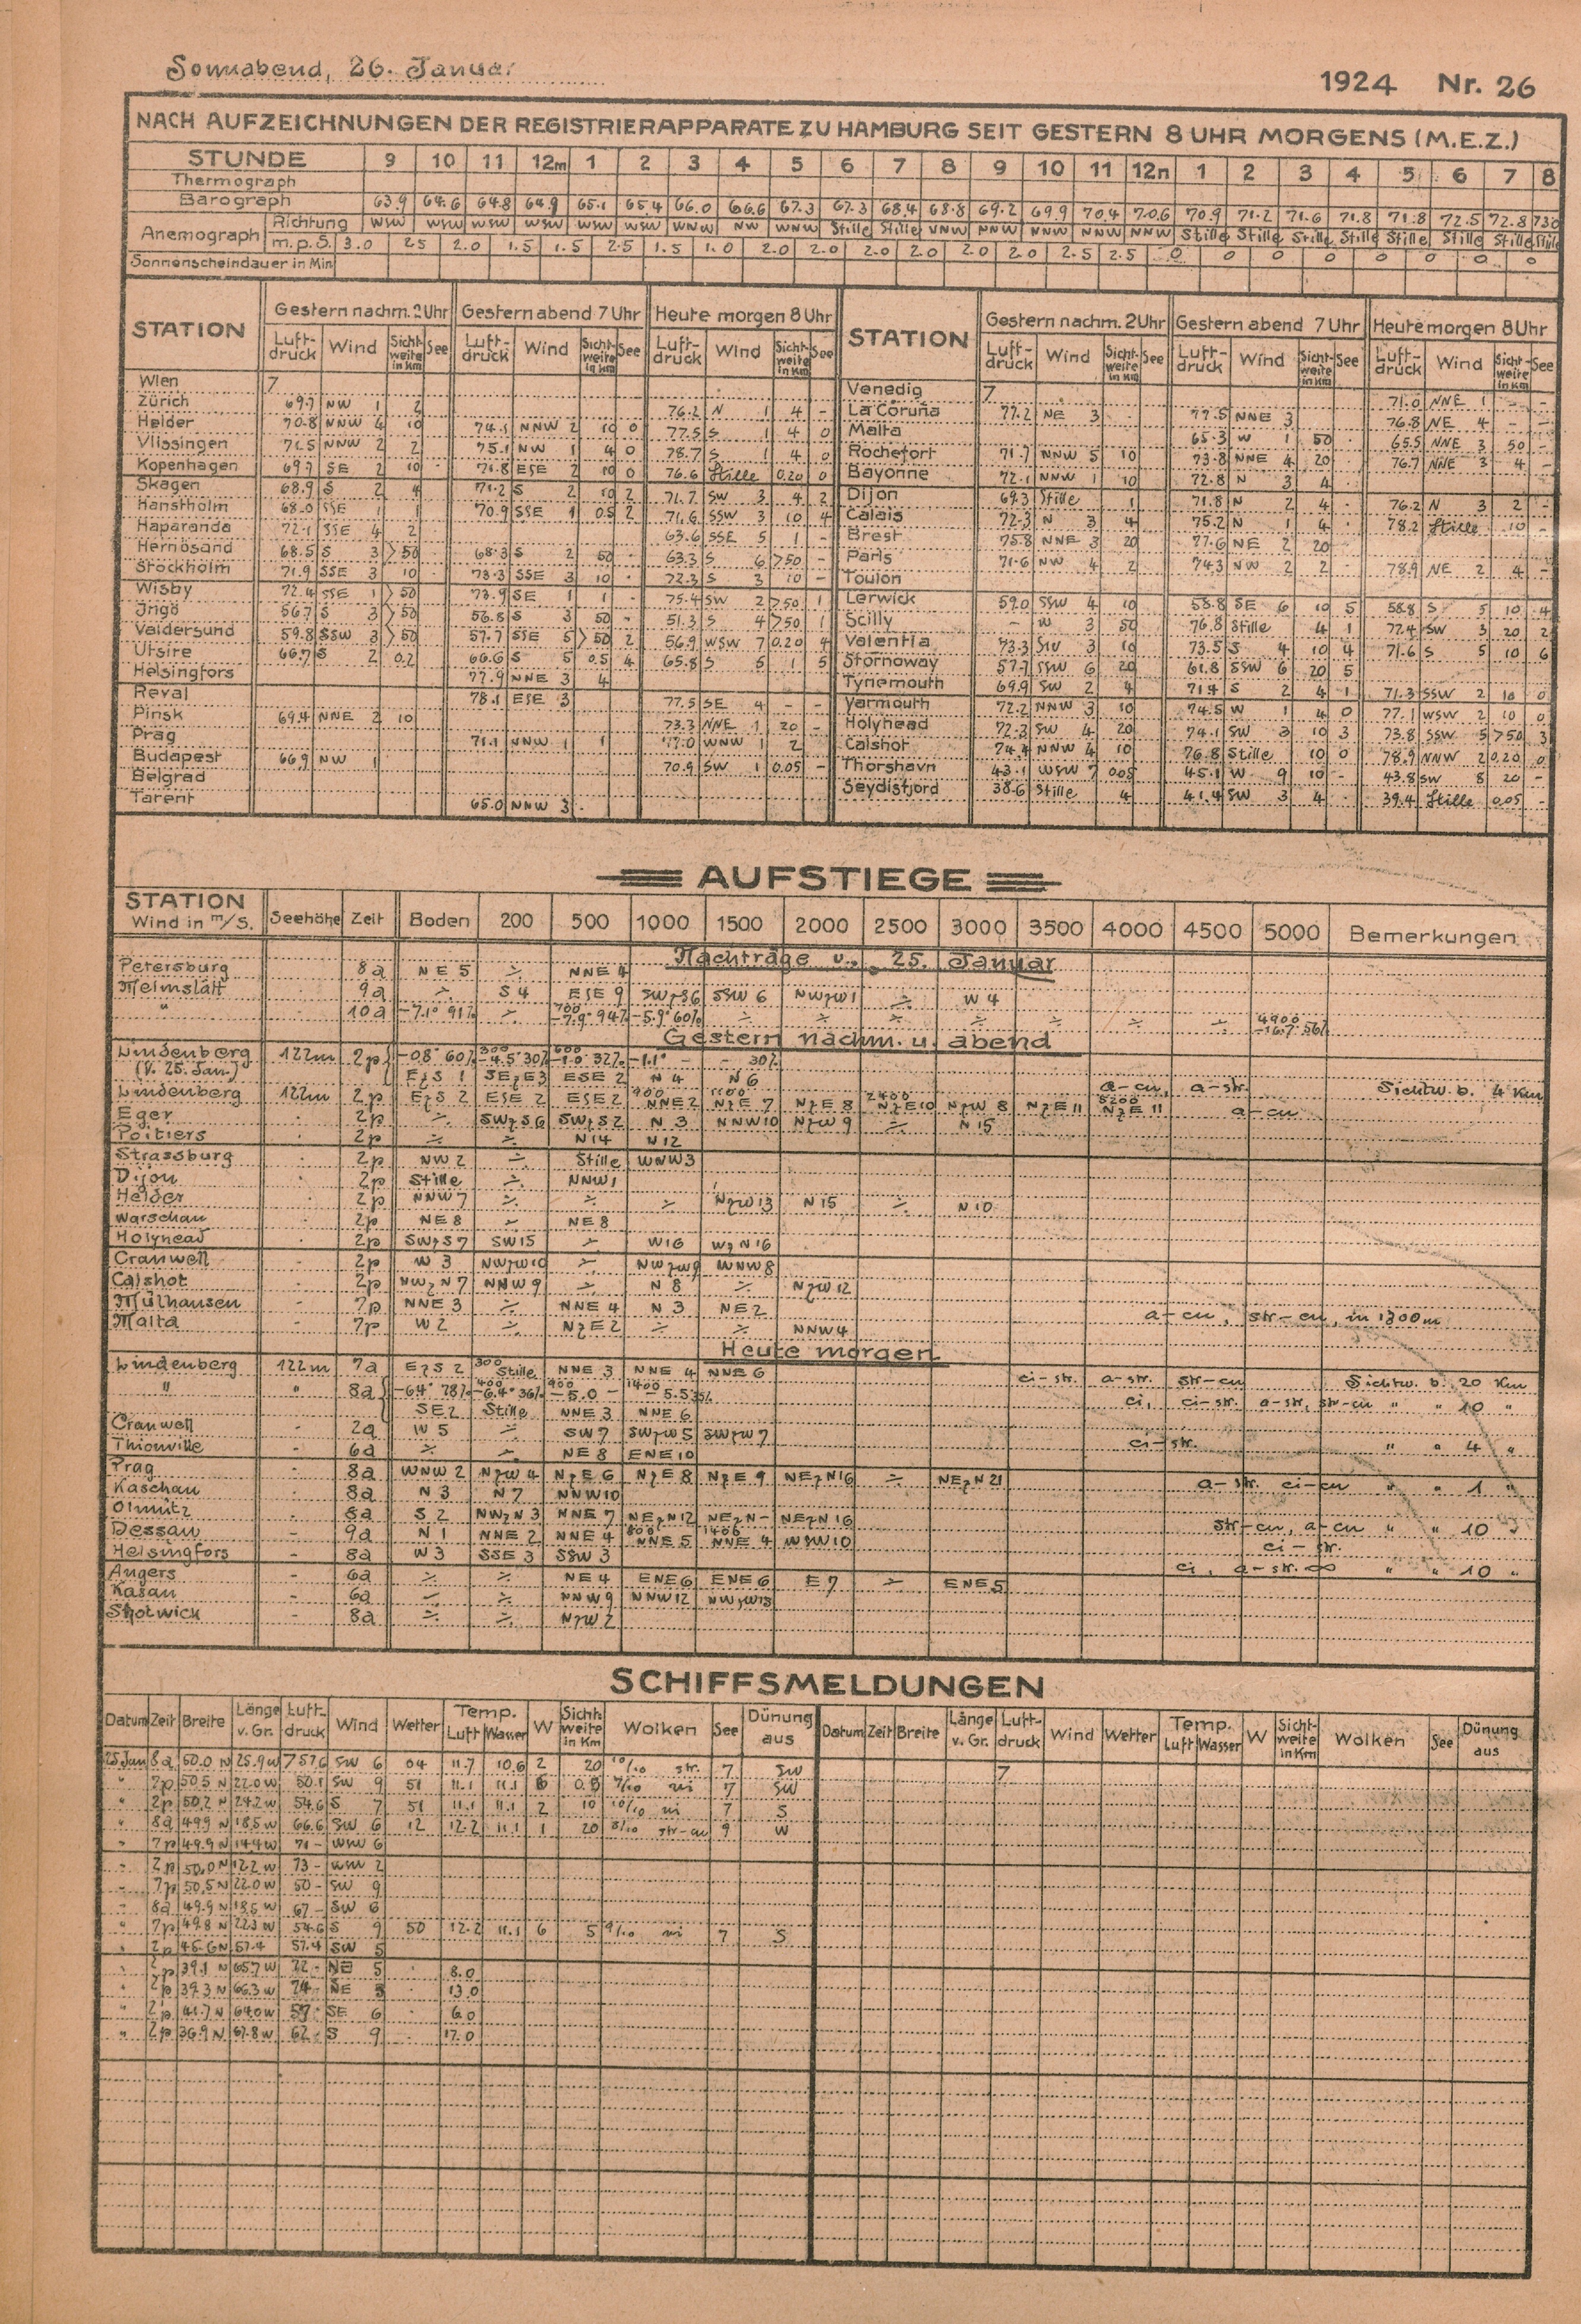 Sonnabend, 26. Januar
1924 Nr. 26
NACH AUFZEICHNUNGEN DER REGISTRIERAPPARATE ZU HAMBURG SEIT GESTERN 8 UHR MORGENS (M.E.Z.)
STUNDE 9 10 11 12m 1 2 3 4 5 6 7 8 9 10 11 12n 1 2 3 4 5 6 7 8
Thermograph
Barograph 63.9 64.6 64.8 64.9 65.1 65.4 66.0 66.6 67.3 67.3 68.4 68.8 69.2 69.9 70.4 70.6 70.9 71.2 71.6 71.8 71.8 72.5 72.8 730
Anemograph Richtung WSW WSW WSW WSW WSW WSW WNW NW WNW Stille Stille WNW NNW NNW NNW NNW Stille Stille Stille Stille Stille Stille Stille Stille
m.p.S. 3.0 2.5 2.0 1.5 1.5 2.5 1.5 1.0 2.0 2.0 2.0 2.0 2.0 2.0 2.5 2.5 0 0 0 0 0 0 0 0
Sonnenscheindauer in Min
STATION Gestern nachm. 2 Uhr Gestern abend 7 Uhr Heute morgen 8 Uhr STATION Gestern nachm. 2 Uhr Gestern abend 7 Uhr Heute morgen 8 Uhr
Luft-druck Wind Sicht-weite in Km See Luft-druck Wind Sicht-weite in Km See Luft-druck Wind Sicht-weite in Km See Luft-druck Wind Sicht-weite in Km See Luft-druck Wind Sicht-weite in Km See Luft-druck Wind Sicht-weite in Km See
Wien 7 Venedig 7 71.0 NNE 1 - -
Zürich 69.7 NW 1 2 76.2 N 1 4 - La Coruña 77.2 NE 3 77.5 NNE 3 76.8 NE 4 - -
Helder 70.8 NNW 4 10 74.1 NNW 2 10 0 77.5 S 1 4 0 Malta 65.3 W 1 50 65.5 NNE 3 50 -
Vlissingen 71.5 NNW 2 2 75.1 NW 1 4 0 78.7 S 1 4 0 Rochefort 71.7 NNW 5 10 73.8 NNE 4 20 76.7 NNE 3 4 -
Kopenhagen 69.7 SE 2 10 71.8 ESE 2 10 0 76.6 Stille 0.20 0 Bayonne 72.1 NNW 1 10 72.8 N 3 4
Skagen 68.9 S 2 4 71.2 S 2 10 2 71.7 SW 3 4 2 Dijon 69.3 Stille 1 71.8 N 2 4 76.2 N 3 2 -
Hanstholm 68.0 SSE 1 1 70.9 SSE 1 0.5 2 71.6 SSW 3 10 4 Calais 72.3 N 3 4 75.2 N 1 4 78.2 Stille 10 -
Haparanda 72.1 SSE 4 2 63.6 SSE 5 1 - Brest 75.8 NNE 3 20 77.6 NE 2 20
Hernösand 68.5 S 3 >50 68.3 S 2 50 63.3 S 6 >50 - Paris 71.6 NW 4 2 74.3 NW 2 2 78.9 NE 2 4 -
Stockholm 71.9 SSE 3 10 73.3 SSE 3 10 72.3 S 3 10 - Toulon
Wisby 72.4 SSE 1 >50 73.9 SE 1 1 75.4 SW 2 >50 1 Lerwick 59.0 SSW 4 10 58.8 SE 6 10 5 58.8 S 5 10 4
Ingö 56.7 S 3 >50 56.8 S 3 50 - 51.3 S 4 >50 1 Scilly - W 3 50 76.8 Stille 4 1 77.4 SW 3 20 2
Valdersund 59.8 SSW 3 >50 57.7 SSE 5 >50 2 56.9 WSW 7 0.20 4 Valentia 73.3 SW 3 10 73.5 S 4 10 4 71.6 S 5 10 6
Utsire 66.7 S 2 0.2 66.6 S 5 0.5 4 65.8 S 5 1 5 Stornoway 57.7 SSW 6 20 61.8 SSW 6 20 5
Helsingfors 77.9 NNE 3 4 Tynemouth 69.9 SW 2 4 71.4 S 2 4 1 71.3 SSW 2 10 0
Reval 78.1 ESE 3 77.5 SE 4 - - Yarmouth 72.2 NNW 3 10 74.5 W 1 4 0 77.1 WSW 2 10 0
Pinsk 69.4 NNE 2 10 73.3 NNE 1 20 - Holyhead 72.3 SW 4 20 74.1 SW 3 10 3 73.8 SSW 5 >50 3
Prag 71.1 NNW 1 1 77.0 WNW 1 2 Calshot 74.4 NNW 4 10 76.8 Stille 10 0 78.9 NNW 2 0.20 0
Budapest 66.9 NW 1 70.9 SW 1 0.05 - Thorshavn 43.1 WSW 7 0.05 45.1 W 9 10 - 43.8 SW 8 20 -
Belgrad Seydisfjord 38.6 Stille 4 41.4 SW 3 4 39.4 Stille 0.05 -
Tarent 65.0 NNW 3
AUFSTIEGE
STATION Wind in m/S. Seehöhe Zeit Boden 200 500 1000 1500 2000 2500 3000 3500 4000 4500 5000 Bemerkungen
Nachträge v. 25. Januar
Petersburg 8a NE 5 ÷ NNE 4
Helmslatt 9a ÷ S 4 ESE 9 SWzS6 SSW 6 NWzW1 ÷ W 4
" 10a -7.1° 91% ÷ 700 -7.9° 94% -5.9° 60% ÷ ÷ ÷ ÷ ÷ ÷ ÷ ÷ 4900 -16.7 56%
Gestern nachm. u. abend
Lindenberg 122m 2p -0.8° 60% 300 -4.5° 30% 600 -1.0° 32% -1.1° - - 30%
(v. 25. Jan.) EzS 1 SEzE3 ESE 2 N 4 N 6
Lindenberg 122m 2p EzS 2 ESE 2 ESE 2 900 NNE 2 1100 NzE 7 NzE 8 2400 NzE10 NzW 8 NzE 11 a-cu, 5200 NzE 11 a-str. Sichtw. b. 4 Km
Eger 2p ÷ SWzS6 SWzS2 N 3 NNW10 NzW 9 ÷ N 15 a-cu
Poitiers 2p ÷ ÷ N14 N12
Strassburg 2p NW 2 ÷ Stille WNW3
Dijon 2p Stille ÷ NNW1
Helder 2p NNW 7 ÷ ÷ ÷ NzW 13 N 15 ÷ N 10
Warschau 2p NE 8 ÷ NE 8
Holyhead 2p SWzS7 SW15 ÷ W16 WzN16
Cranwell 2p W 3 NWzW10 ÷ NWzW9 WNW8
Calshot 2p NWzN 7 NNW 9 ÷ N 8 ÷ NzW 12
Mülhausen 7p NNE 3 ÷ NNE 4 N 3 NE 2 a-cu, str-cu, in 1300m
Malta 7p W 2 ÷ NzE 2 ÷ ÷ NNW4
Heute morgen
Lindenberg 122m 7a EzS 2 300 Stille NNE 3 NNE 4 NNE 6 ci-str. a-str. str-cu Sichtw. b. 20 Km
" " 8a -6.4° 78% 400 -6.4° 36% 900 -5.0 - 1400 -5.5 35% ci, ci-str. a-str, str-cu " " 10 "
SE2 Stille NNE 3 NNE 6
Cranwell 2a W 5 ÷ SW 7 SWzW5 SWzW7
Thionville 6a ÷ ÷ NE 8 ENE10 ci-str. " " 4 "
Prag 8a WNW 2 NzW 4 NzE 6 NzE 8 NzE 9 NEzN16 ÷ NEzN 21
Kaschau 8a N 3 N 7 NNW10 a-str. ci-cu " " 1 "
Olmütz 8a S 2 NWzN 3 NNE 7 NEzN12 NEzN- NEzN 16
Dessau 9a N 1 NNE 2 NNE 4 800 NNE 5 1400 NNE 4 WSW10 str-cu, a-cu " " 10 "
Helsingfors 8a W 3 SSE 3 SSW 3 ci-str.
Angers 6a ÷ ÷ NE 4 ENE6 ENE 6 E 7 ÷ ENE5 ci, a-str. ∞ " " 10 "
Kasan 6a ÷ ÷ NNW9 NNW12 NWzW13
Shotwick 8a ÷ ÷ NzW 2
SCHIFFSMELDUNGEN
Datum Zeit Breite Länge v. Gr. Luft-druck Wind Wetter Temp. Luft Wasser W Sicht-weite in Km Wolken See Dünung aus Datum Zeit Breite Länge v. Gr. Luft-druck Wind Wetter Temp. Luft Wasser W Sicht-weite in Km Wolken See Dünung aus
25 Jan 8a 50.0 N 25.9 W 757.6 SW 6 04 11.7 10.6 2 20 10/10 str. 7 SW 7
" 7p 50.5 N 22.0 W 50.1 SW 9 51 11.1 11.1 6 0.5 9/10 ni 7 SW
" 2p 50.2 N 24.2 W 54.6 S 7 51 11.1 11.1 2 10 10/10 ni 7 S
" 8a 49.9 N 18.5 W 66.6 SW 6 12 12.2 11.1 1 20 8/10 str-cu 9 W
" 7p 49.9 N 14.4 W 71 - WSW 6
" 2p 50.0 N 12.2 W 73 - WSW 2
" 7p 50.5 N 22.0 W 50 - SW 9
" 8a 49.9 N 18.5 W 67 - SW 6
" 7p 49.8 N 22.3 W 54.6 S 9 50 12.2 11.1 6 5 9/10 ni 7 S
" 2p 45.6 N 57.4 57.4 SW 5
" 2p 39.1 N 65.7 W 72 - NE 5 8.0
" 2p 39.3 N 66.3 W 74 NE 3 13.0
" 2p 41.7 N 64.0 W 57 SE 6 6.0
" 2p 36.9 N 67.8 W 62 S 9 17.0